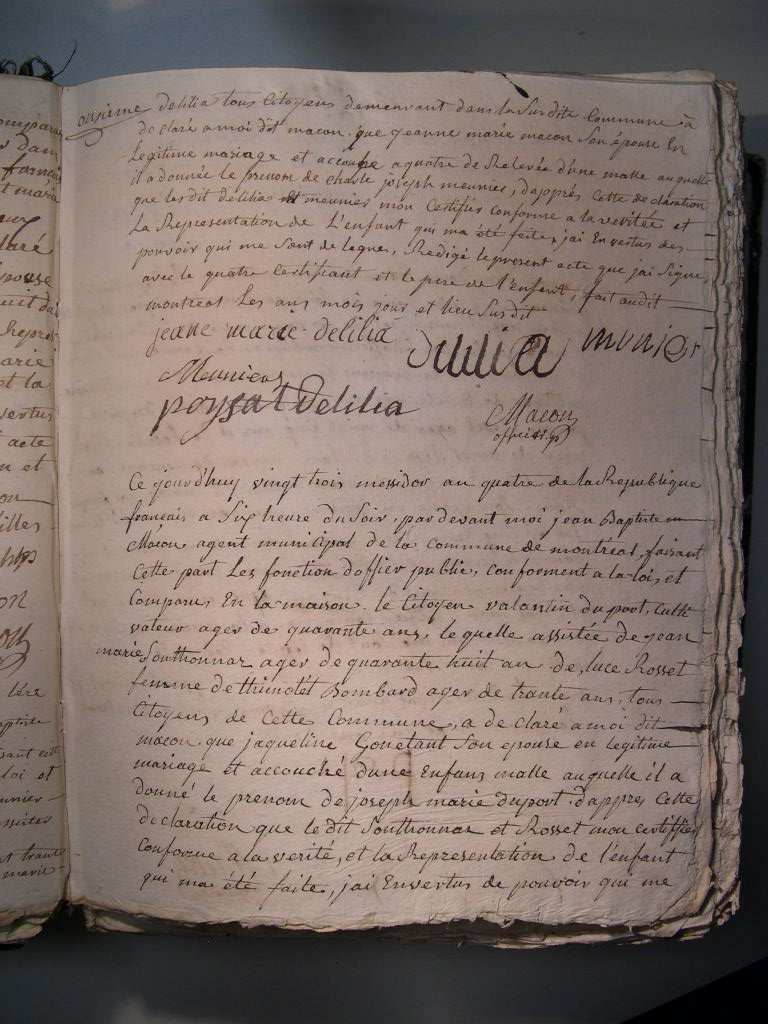 onzième delilia tous Citoyens demeurant dans la Susdite Commune à
de claré a moi dit macon, que jeanne marie macon Son épouse En
Legitime mariage et accouché a quatre de Relevée d'une malle auquelle
il a donnée le prenom de charle joseph meunier, d'apprés Cette de claration
que les dit delilia et meunier mon Certifiér Conforme a la verité et
La Representation de L'enfant qui ma été faite, jai En vertus des
pouvoir qui me Sont de legue, Redigé le present acte que jai Signe,
avec le quatre Certifiant et le pere de l'enfent, fait audit
montreal Les ans mois jour et lieu Susdit
jeane marie delilia
delilia munier
Meunier
poysat delilia
Macon
officier
Ce jourd'huy vingt trois messidor an quatre de la Republique
français a Six heure du Soir, par devant moi jean Baptiste
Macon agent municipal de la Commune de montreal, faisant
Cette part Les fonction doffier public, conforment a la loi, et
Comparu, En la maison. le Citoyen valantin duport, Cultt
vateur ager de quarante ans, le quelle assistée de jean
marie Sonthonnax ager de quarante huit an de, luce Rosset
femme de thimotét Bombard ager de trante ans, tous
Citoyens de Cette Commune, a de claré a moi dit
macon, que jaqueline Gonetant Son epouse en legitime
mariage et accouché dune Enfans malle auquelle il a
donné le prenom de joseph marie duport d'appres Cette
de claration que le dit Sonthonnax et Rosset mon certifier
Conforme a la verité, et la Representation de l'enfant
qui ma été faite, jai En vertus de pouvoir qui me